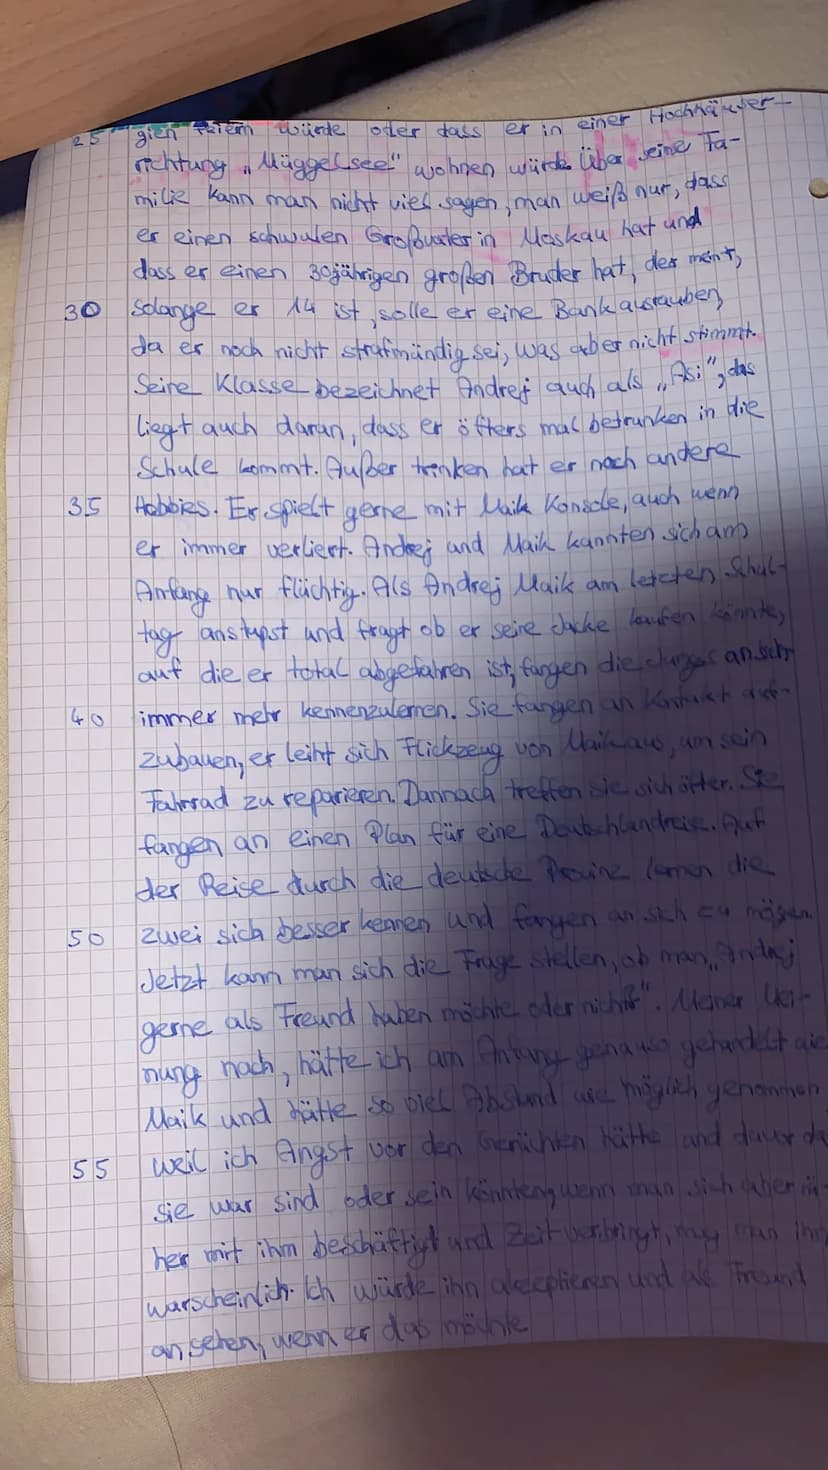 25 gien feiern würde oder dass er in einer Hochhäuser-
richtung "Müggelsee" wohnen würde. Über seine Fa-
milie kann man nicht viel sagen, man weiß nur, dass
er einen schwulen Großvater in Moskau hat und
dass er einen 30jährigen großen Bruder hat, der meint,
30 solange er 14 ist, solle er eine Bank ausrauben,
da er noch nicht strafmündig sei, was aber nicht stimmt.
Seine Klasse bezeichnet Andrej auch als „Asi", das
liegt auch daran, dass er öfters mal betrunken in die
Schule kommt. Außer trinken hat er noch andere
35 Hobbies. Er spielt gerne mit Maik Konsole, auch wenn
er immer verliert. Andrej und Maik kannten sich am
Anfang nur flüchtig. Als Andrej Maik am letzten Schul-
tag anstupst und fragt ob er seine Jacke kaufen könnte,
auf die er total abgefahren ist, fangen die Jungs an sich
40 immer mehr kennenzulernen. Sie fangen an Kontakt auf-
zubauen, er leiht sich Flickzeug von Maik aus, um sein
Fahrrad zu reparieren. Dannach treffen sie sich öfter. Sie
fangen an einen Plan für eine Deutschlandreise. Auf
der Reise durch die deutsche Provinz lernen die
50 zwei sich besser kennen und fangen an sich zu mögen.
Jetzt kann man sich die Frage stellen, ob man „Andrej
gerne als Freund haben möchte oder nicht". Meiner Mei-
nung nach, hätte ich am Anfang genauso gehandelt wie
Maik und hätte so viel Abstand wie möglich genommen
55 weil ich Angst vor den Gerüchten hätte und davor da
sie war sind oder sein könnten, wenn man sich aber nä-
her mit ihm beschäftigt und Zeit verbringt, mag man ihn
warscheinlich. Ich würde ihn akzeptieren und als Freund
ansehen, wenn er das möchte